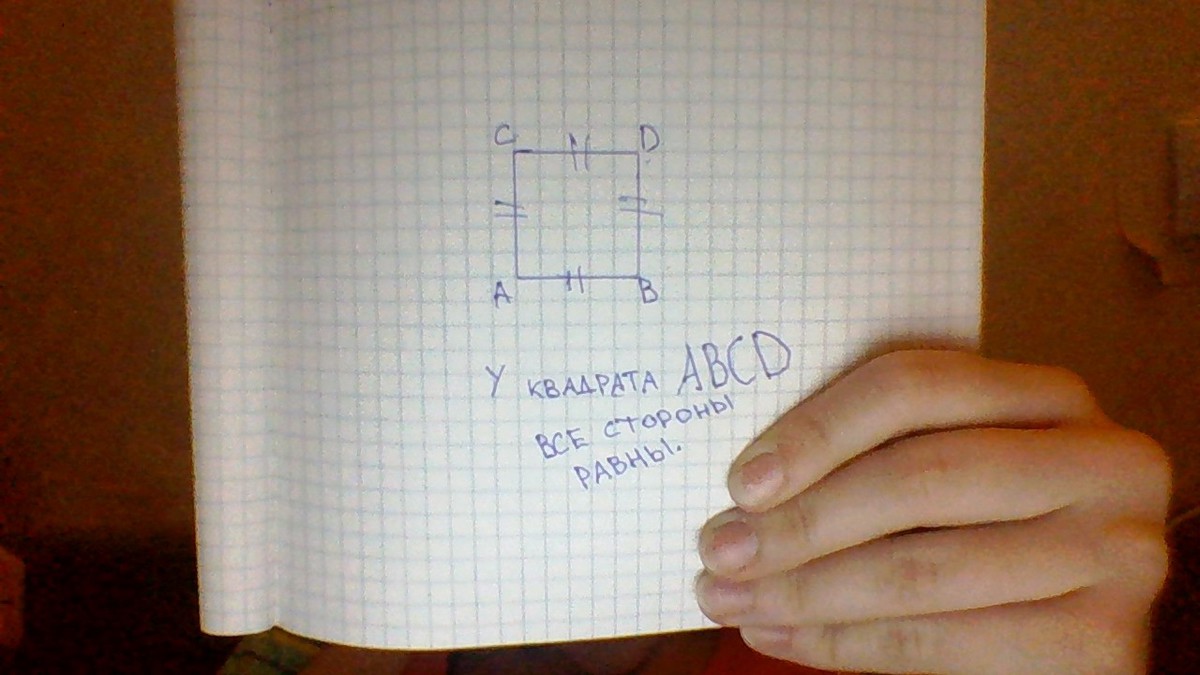 C D
A B
У КВАДРАТА ABCD
ВСЕ СТОРОНЫ
РАВНЫ.